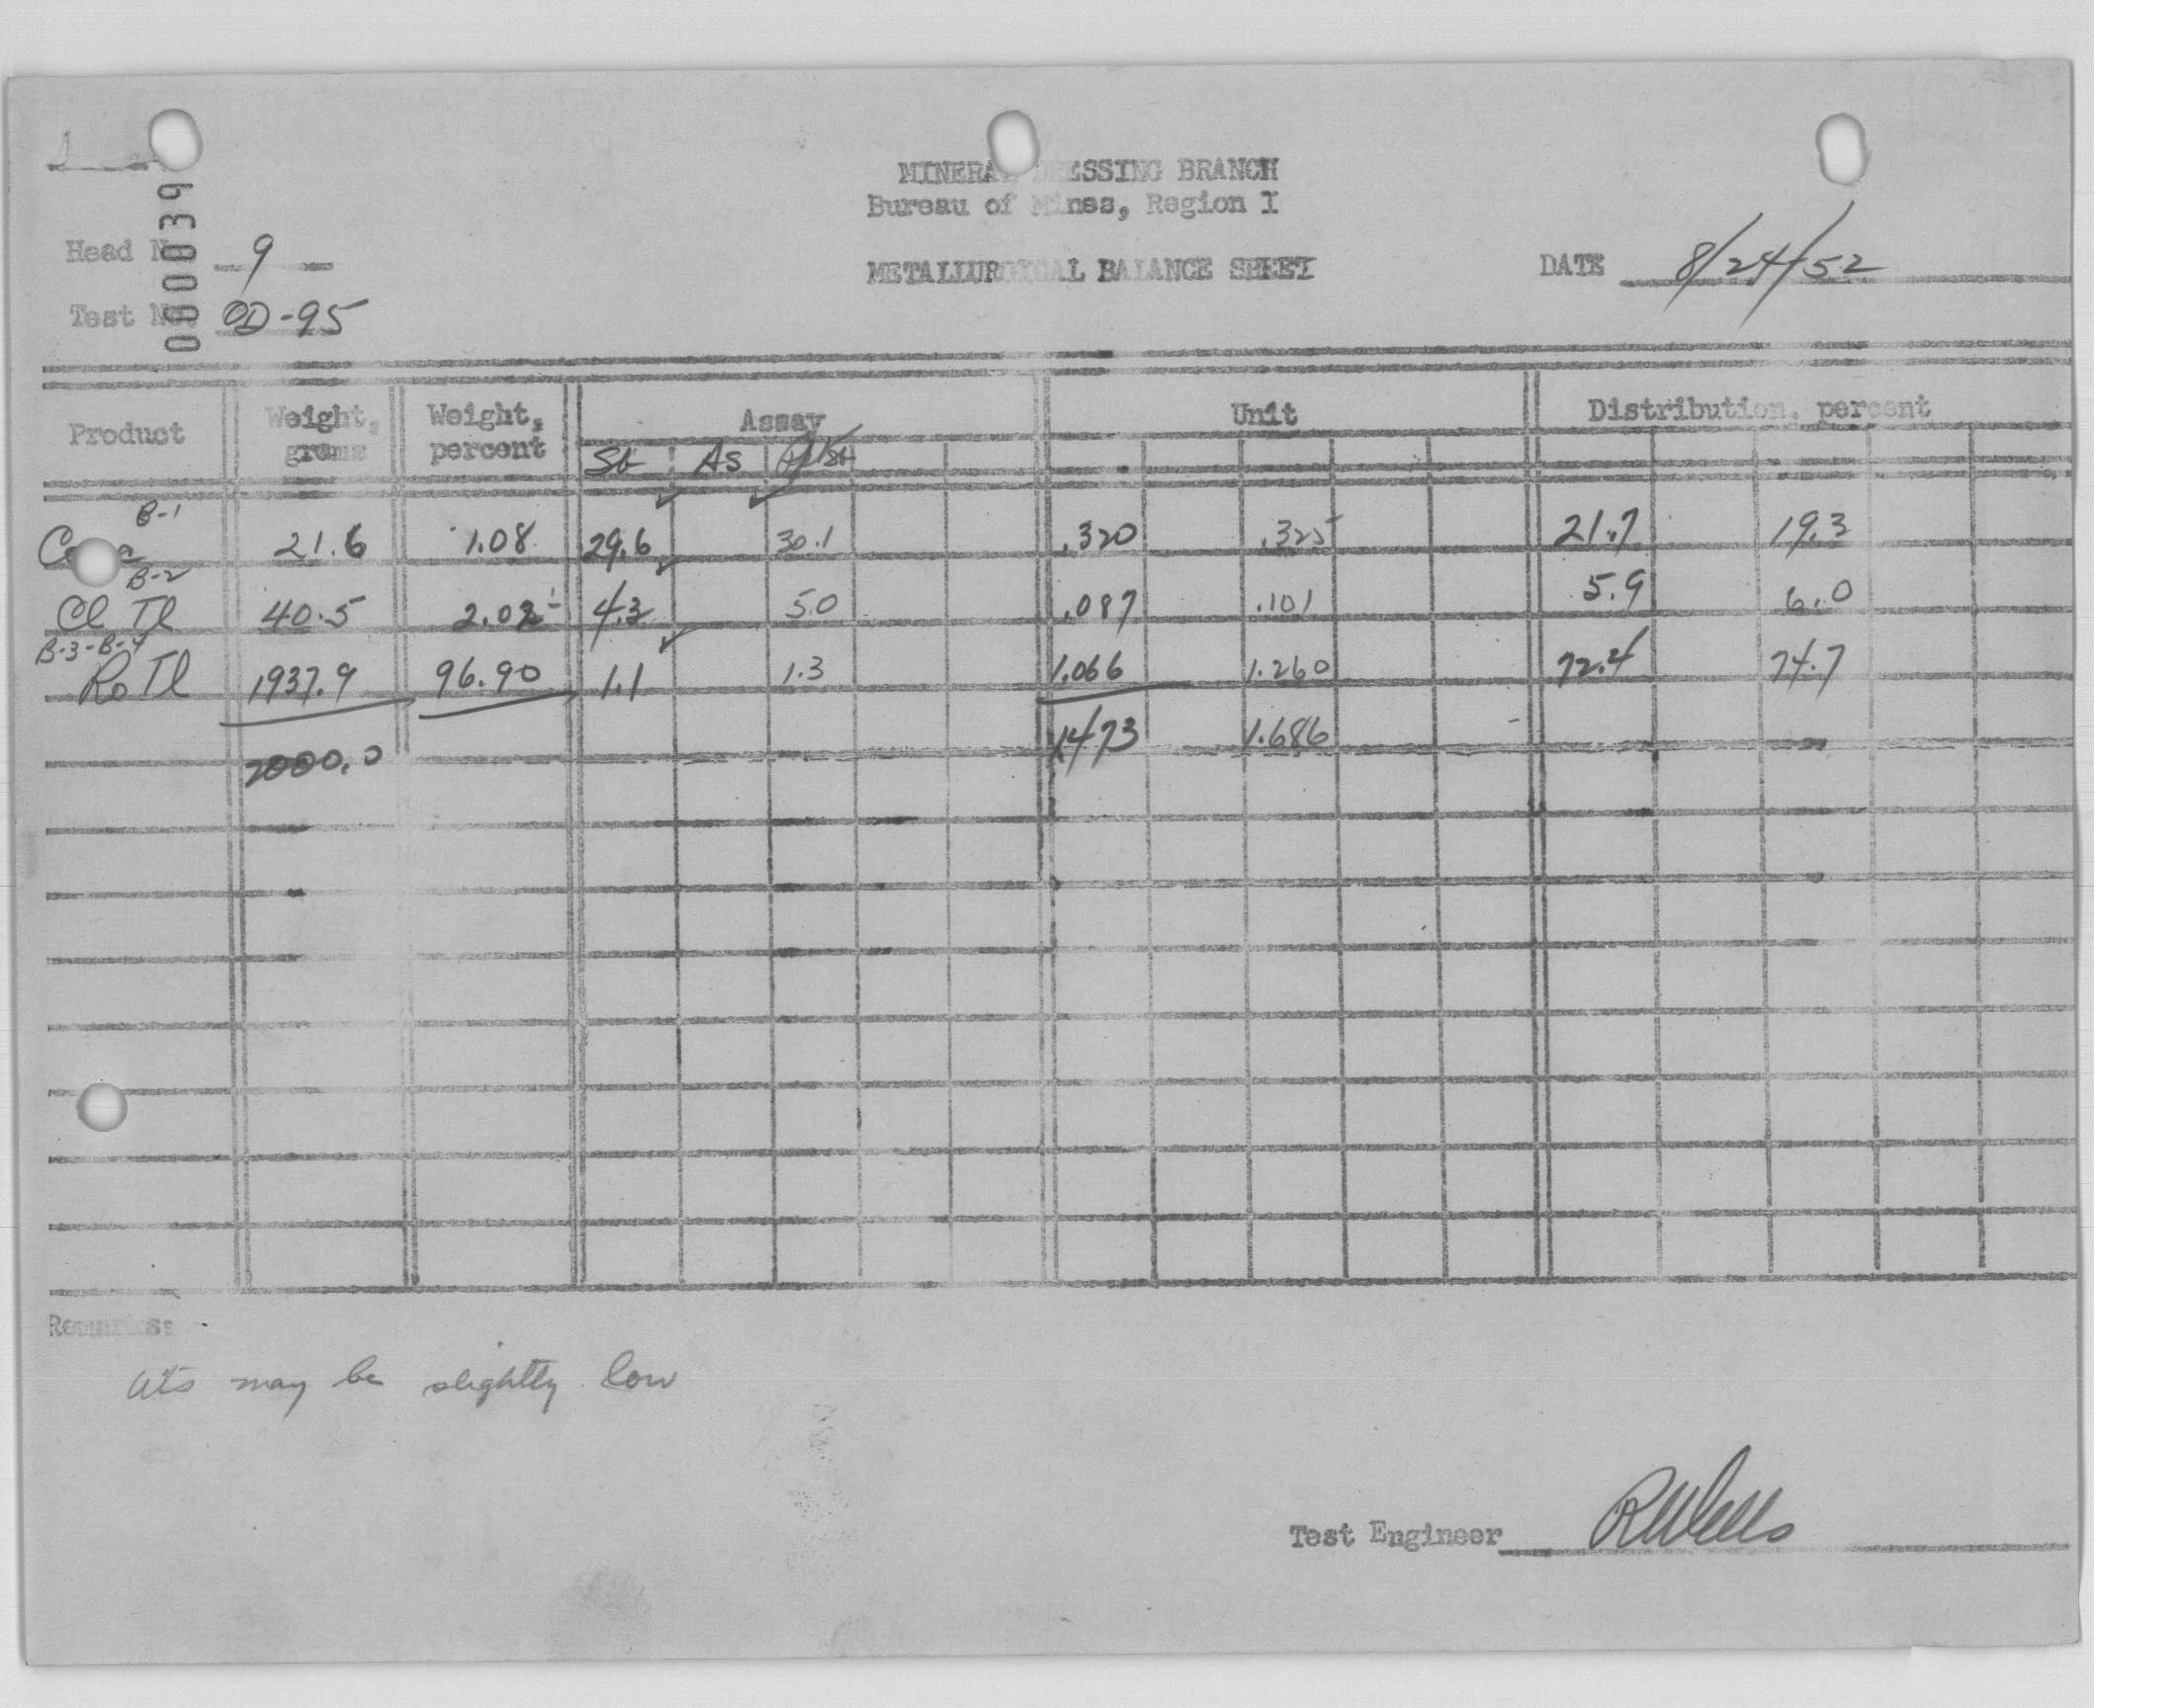 000039
MINERAL DRESSING BRANCH
Bureau of Mines, Region I
Head No. 9
METALLURGICAL BALANCE SHEET
DATE 8/24/52
Test No. OD-95
Product Weight, grams Weight, percent Assay Unit Distribution, percent
Sb As
B-1
21.6 1.08 29.6 30.1 .320 .325 21.7 19.3
B-2
Cl Tl 40.5 2.02 4.3 5.0 .087 .101 5.9 6.0
B-3-B-4
Ro Tl 1937.9 96.90 1.1 1.3 1.066 1.260 72.4 74.7
2000.0 1473 1.686
Remarks:
may be slightly low
Test Engineer RWells